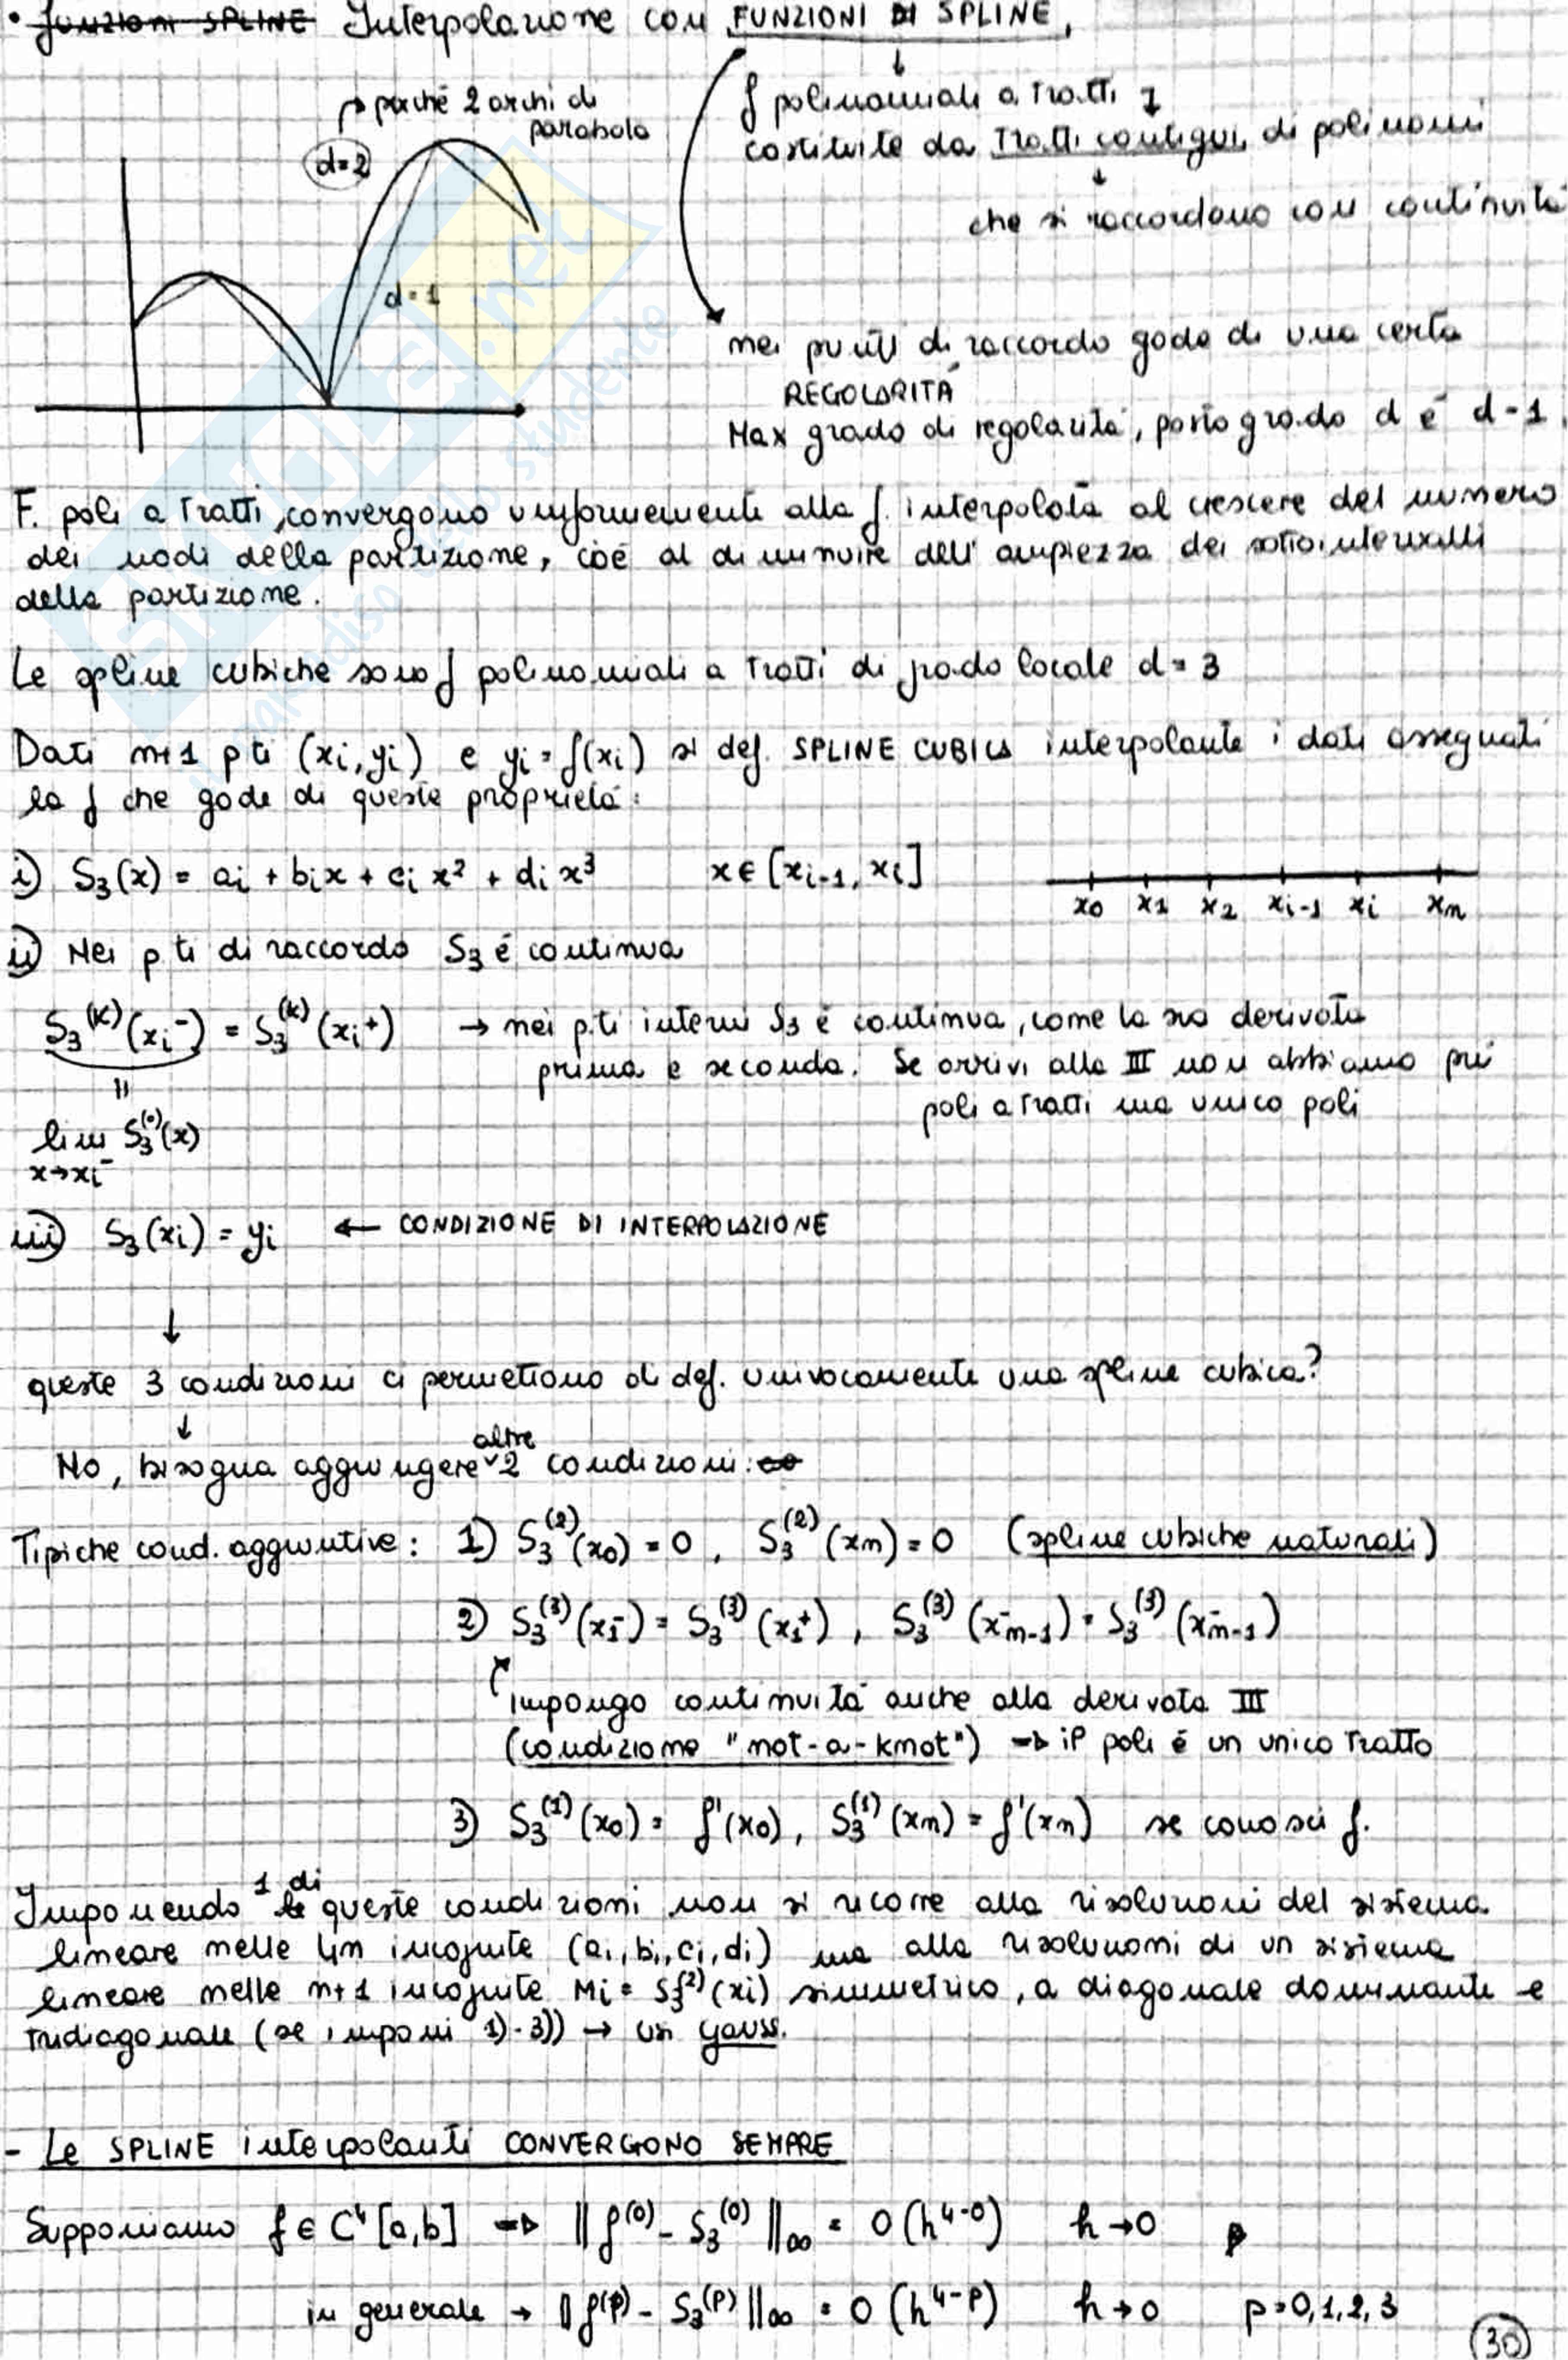 • Funzioni SPLINE Interpolazione con FUNZIONI DI SPLINE,
↓
f polinomiali a tratti
costituite da tratti contigui, di polinomi
↓
che si raccordano con continuità
→ perché 2 archi di
parabola
d=2
d=1
nei punti di raccordo gode di una certa
REGOLARITÀ
Max grado di regolarità, posto grado d è d-1.
F. poli a tratti, convergono uniformemente alla f. interpolata al crescere del numero
dei nodi della partizione, cioè al diminuire dell'ampiezza dei sottointervalli
della partizione.
Le spline cubiche sono f polinomiali a tratti di grado locale d=3
Dati n+1 p.ti (xi,yi) e yi=f(xi) si def. SPLINE CUBICA interpolante i dati assegnati
la f che gode di queste proprietà:
i) S₃(x) = ai + bix + ci x² + di x³ x∈[xi-1, xi]
x0 x1 x2 xi-1 xi xn
ii) Nei p.ti di raccordo S₃ è continua
S₃⁽ᵏ⁾(xi⁻) = S₃⁽ᵏ⁾(xi⁺) → nei p.ti interni S₃ è continua, come la sua derivata
prima e seconda. Se arrivi alla III non abbiamo più
poli a tratti ma unico poli
=
lim S₃⁽⁰⁾(x)
x→xi⁻
iii) S₃(xi) = yi ← CONDIZIONE DI INTERPOLAZIONE
↓
queste 3 condizioni ci permettono di def. univocamente una spline cubica?
↓
No, bisogna aggiungere altre 2 condizioni:
Tipiche cond. aggiuntive: 1) S₃⁽²⁾(x0) = 0, S₃⁽²⁾(xn) = 0 (spline cubiche naturali)
2) S₃⁽³⁾(x1⁻) = S₃⁽³⁾(x1⁺), S₃⁽³⁾(x⁻n-1) = S₃⁽³⁾(x⁻n-1)
impongo continuità anche alla derivata III
(condizione "not-a-knot") → il poli è un unico tratto
3) S₃⁽¹⁾(x0) = f'(x0), S₃⁽¹⁾(xn) = f'(xn) se conosci f.
Imponendo 1 di queste condizioni non si ricorre alla risoluzioni del sistema
lineare nelle 4n incognite (ai, bi, ci, di) ma alla risoluzioni di un sistema
lineare nelle n+1 incognite Mi = S₃⁽²⁾(xi) simmetrico, a diagonale dominante e
tridiagonale (se imponi 1)-3)) → usi gauss.
- Le SPLINE interpolanti CONVERGONO SEMPRE
Supponiamo f ∈ C⁴[a,b] → ||f⁽⁰⁾ - S₃⁽⁰⁾||∞ = O(h⁴⁻⁰) h→0 p
in generale → ||f⁽ᵖ⁾ - S₃⁽ᵖ⁾||∞ = O(h⁴⁻ᵖ) h→0 p=0,1,2,3
30
SKUOLA.net
il paradiso dello studente